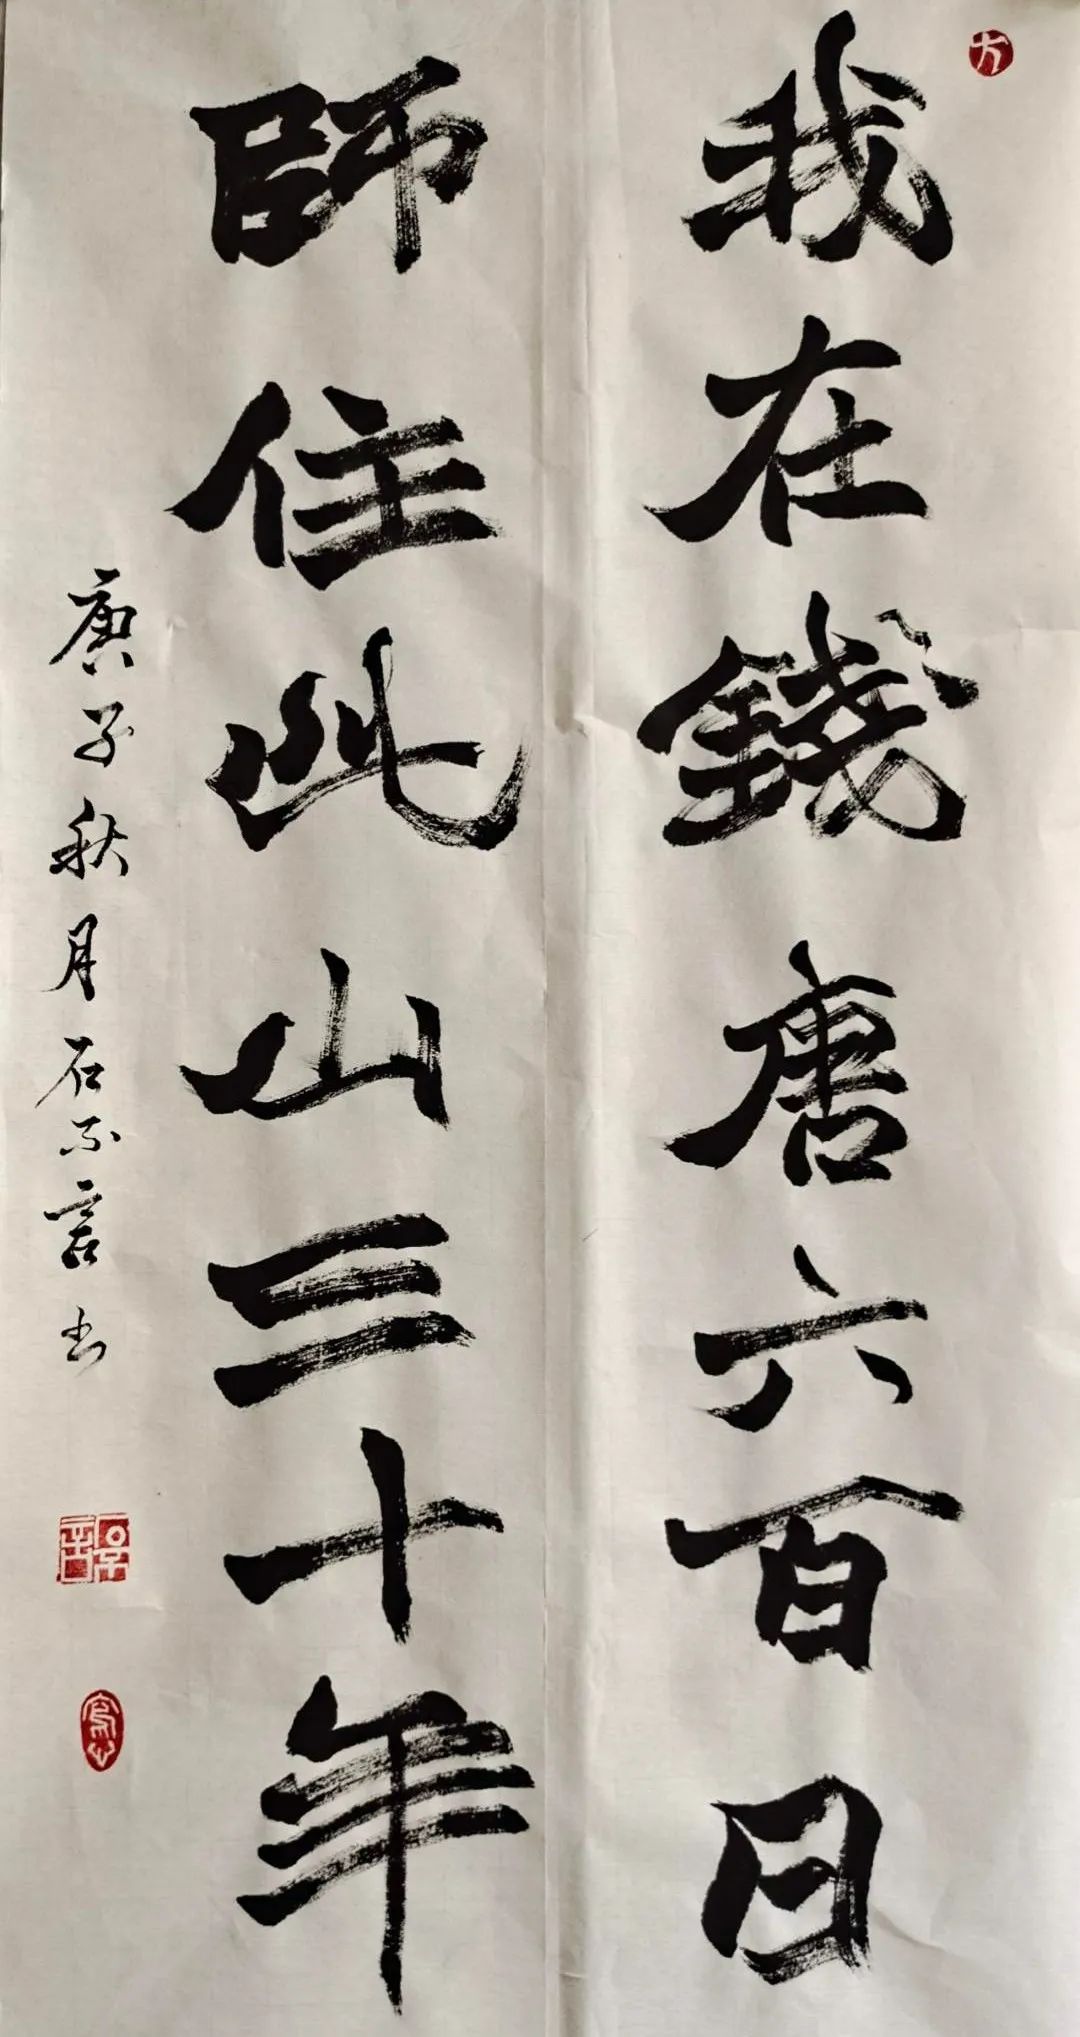 我在錢唐六百日
師住此山三十年
庚子秋月石不言书